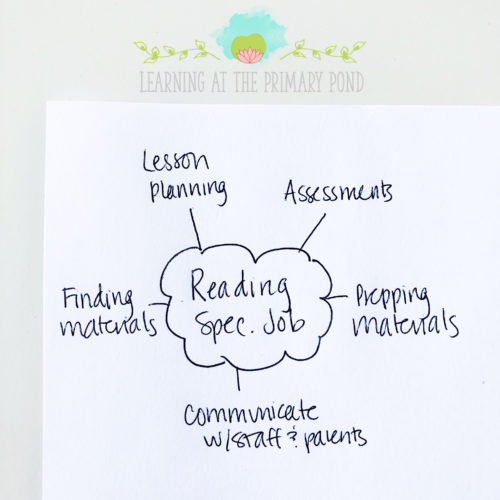 LEARNING AT THE PRIMARY POND
Lesson
planning
Assessments
Reading
Spec. Job
Finding
materials
Prepping
materials
Communicate
w/staff & parents